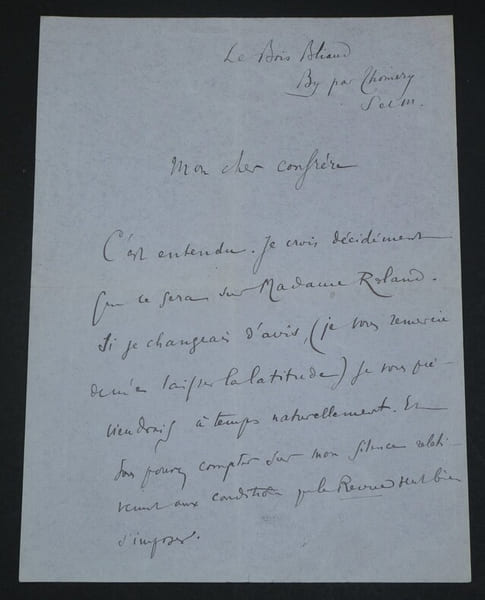 Le Bois Bliaud
By par Thomery
S et M.
Mon cher confrère
C'est entendu. Je crois décidément
que ce sera sur Madame Roland.
Si je changeais d'avis, (je vous remercie
de m'en laisser la latitude) je vous pré-
viendrais à temps naturellement. Et
vous pouvez compter sur mon silence relati-
vement aux conditions que la Revue veut bien
s'imposer.